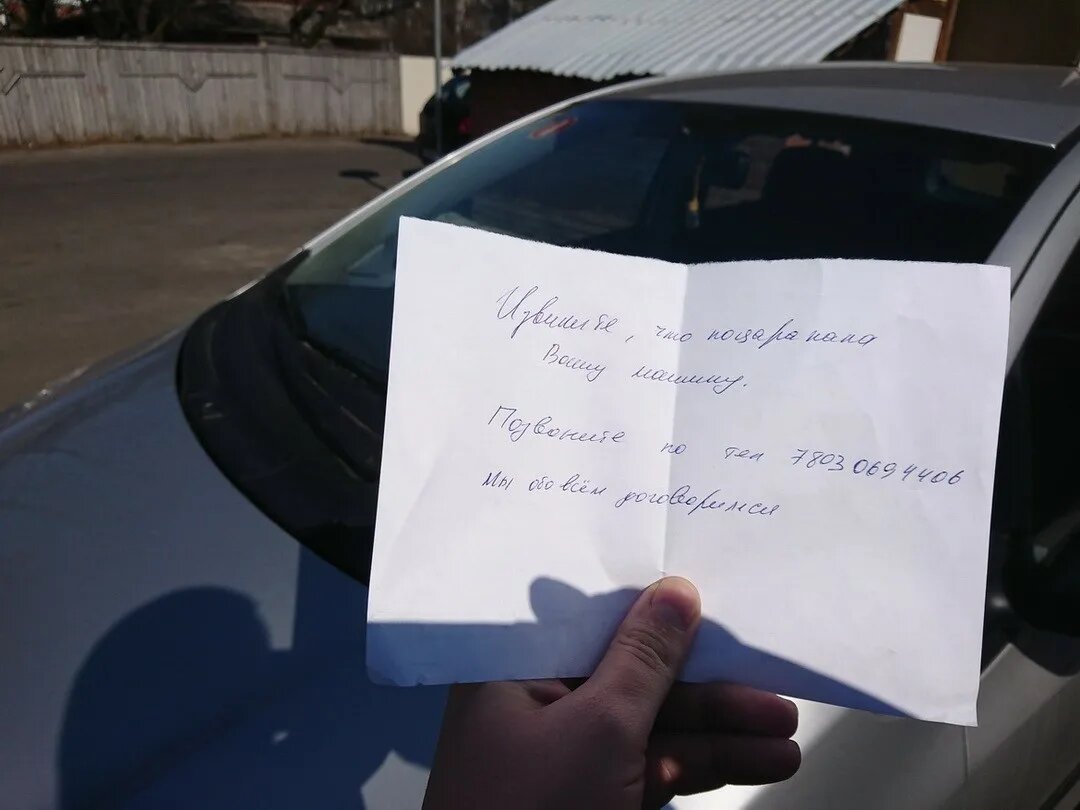 Извините, что поцарапала
Вашу машину.
Позвоните по тел 78030694406
Мы обо всём договоримся